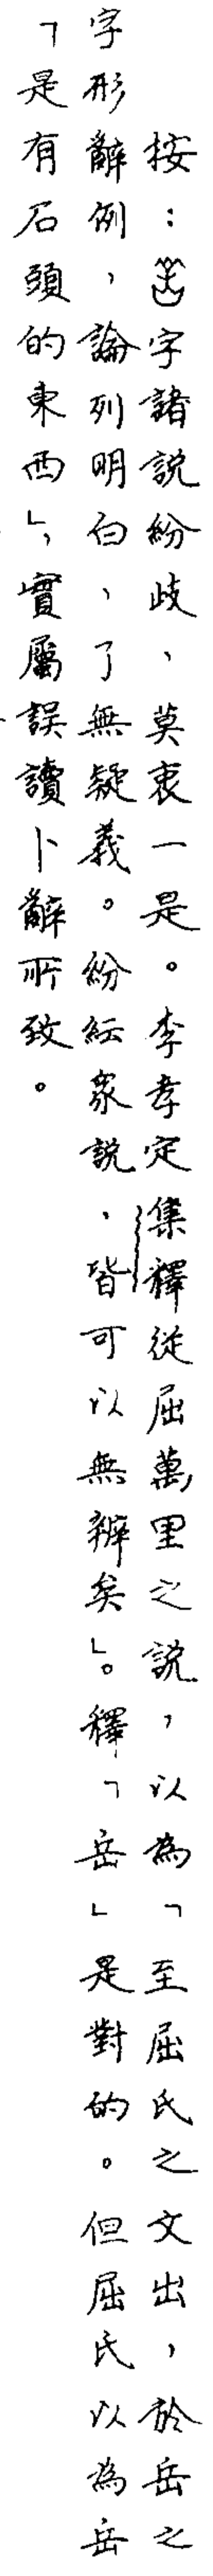 按：字諸說紛歧，莫衷一是。李孝定集釋從屈萬里之說，以為「至屈氏之文出，於岳之
字形辭例，論列明白，了無疑義。紛紜眾說，皆可以無辨矣」。釋「岳」是對的。但屈氏以為岳
「是有石頭的東西」，實屬誤讀卜辭所致。